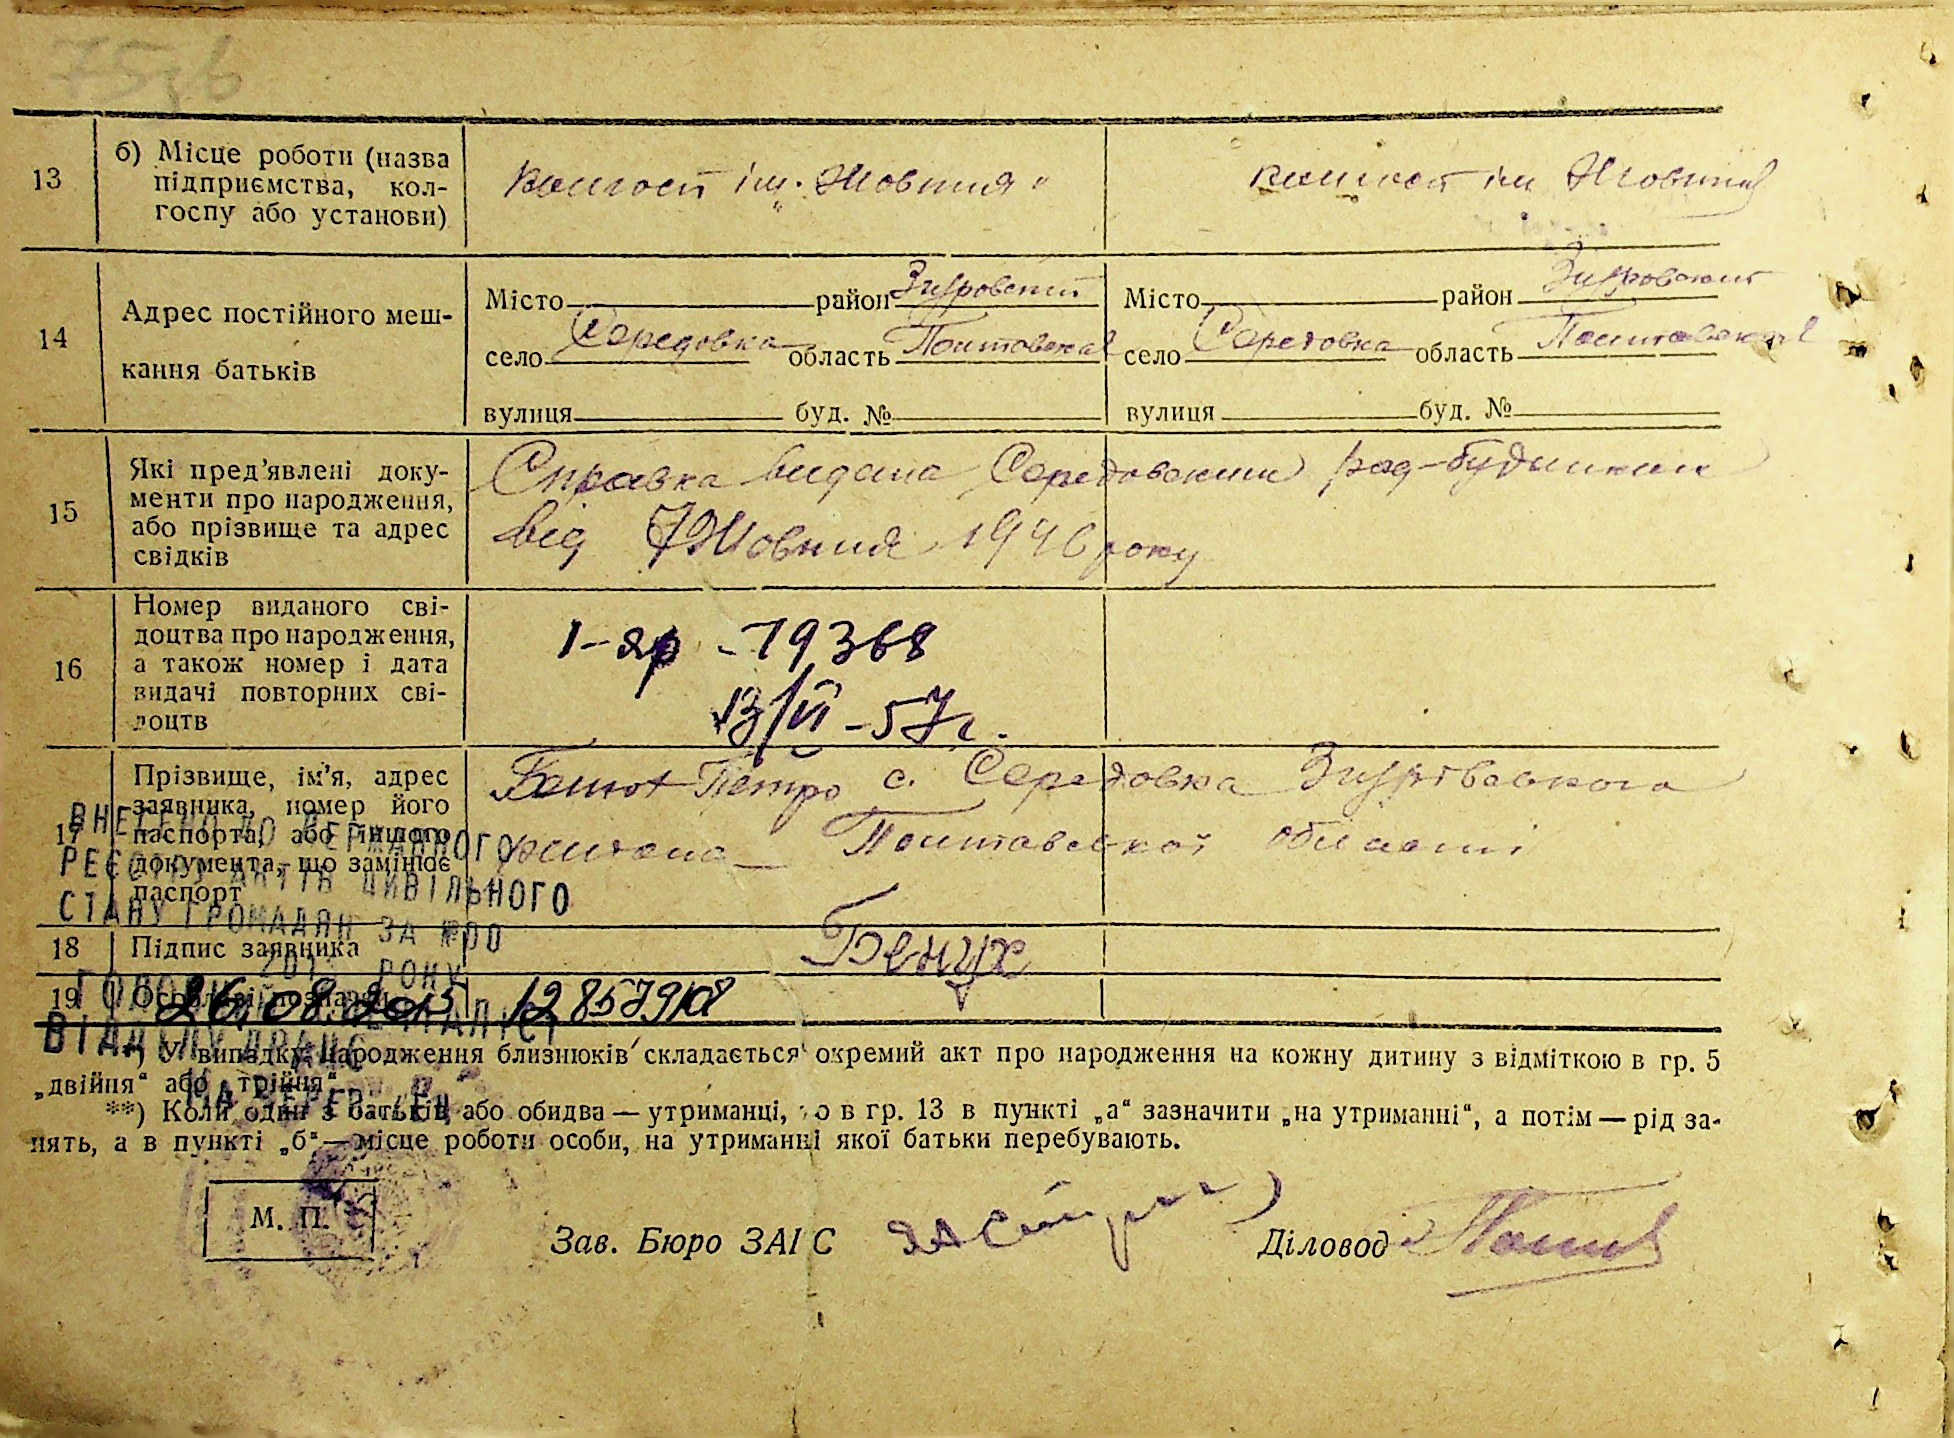 13
б) Місце роботи (назва
підприємства, кол-
госпу або установи)
колгосп ім. „Жовтня“
колгосп ім Жовтня
14
Адрес постійного меш-
кання батьків
Місто район Згуровский
село Середовка область Полтовская
вулиця буд. №
Місто район Згуровский
село Середовка область Полтавская
вулиця буд. №
15
Які пред'явлені доку-
менти про народження,
або прізвище та адрес
свідків
Справка видана Середовским рад-будинком
від 7 Жовтня 1946 року
16
Номер виданого сві-
доцтва про народження,
а також номер і дата
видачі повторних сві-
доцтв
1-яр - 79368
13/VI - 57 г.
17
Прізвище, ім'я, адрес
заявника, номер його
паспорта, або іншого
документа, що замінює
паспорт
Петро с. Середовка Згурівського
району Полтавської області
ВНЕСЕНО ДО ДЕРЖАВНОГО
РЕЄСТРУ АКТІВ ЦИВІЛЬНОГО
СТАНУ ГРОМАДЯН ЗА №00
РОКУ
18
Підпис заявника
19
Особливі позначки
26.08.2015 12857908
ВІДДІЛУ ДРАЦС
*) У випадку народження близнюків складається окремий акт про народження на кожну дитину з відміткою в гр. 5
„двійня“ або „трійня“.
**) Коли один з батьків або обидва — утриманці, то в гр. 13 в пункті „а“ зазначити „на утриманні“, а потім — рід за-
нять, а в пункті „б“ — місце роботи особи, на утриманні якої батьки перебувають.
М. П.
Зав. Бюро ЗАГС
Діловод